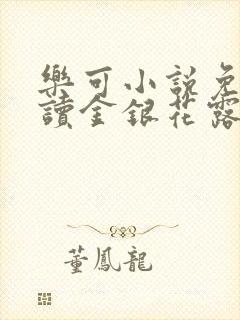 樂可小說免
讀金銀花露
董鳳龍